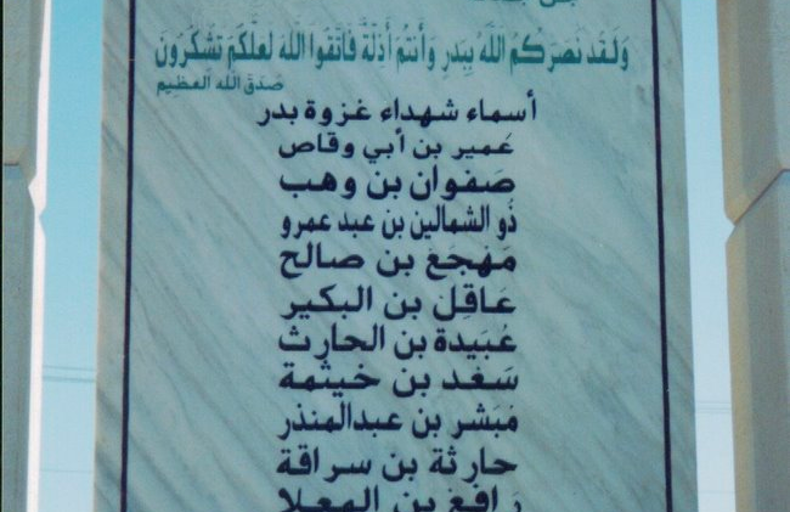 وَلَقَد نَصَرَكُمُ اللَّهُ بِبَدرٍ وَأَنتُمْ أَذِلَّةٌ فَاتَّقُوا اللَّهَ لَعَلَّكُمْ تَشْكُرُونَ
صَدَقَ الله العَظِيم
أسماء شهداء غزوة بدر
عُمير بن أبي وقاص
صَفوان بن وهب
ذُو الشمالين بن عبد عمرو
مَهْجَعْ بن صالح
عَاقِل بن البكير
عُبَيدة بن الحارث
سَعْد بن خيثمة
مُبَشر بن عبدالمنذر
حارثة بن سراقة
رَافع بن المعلا